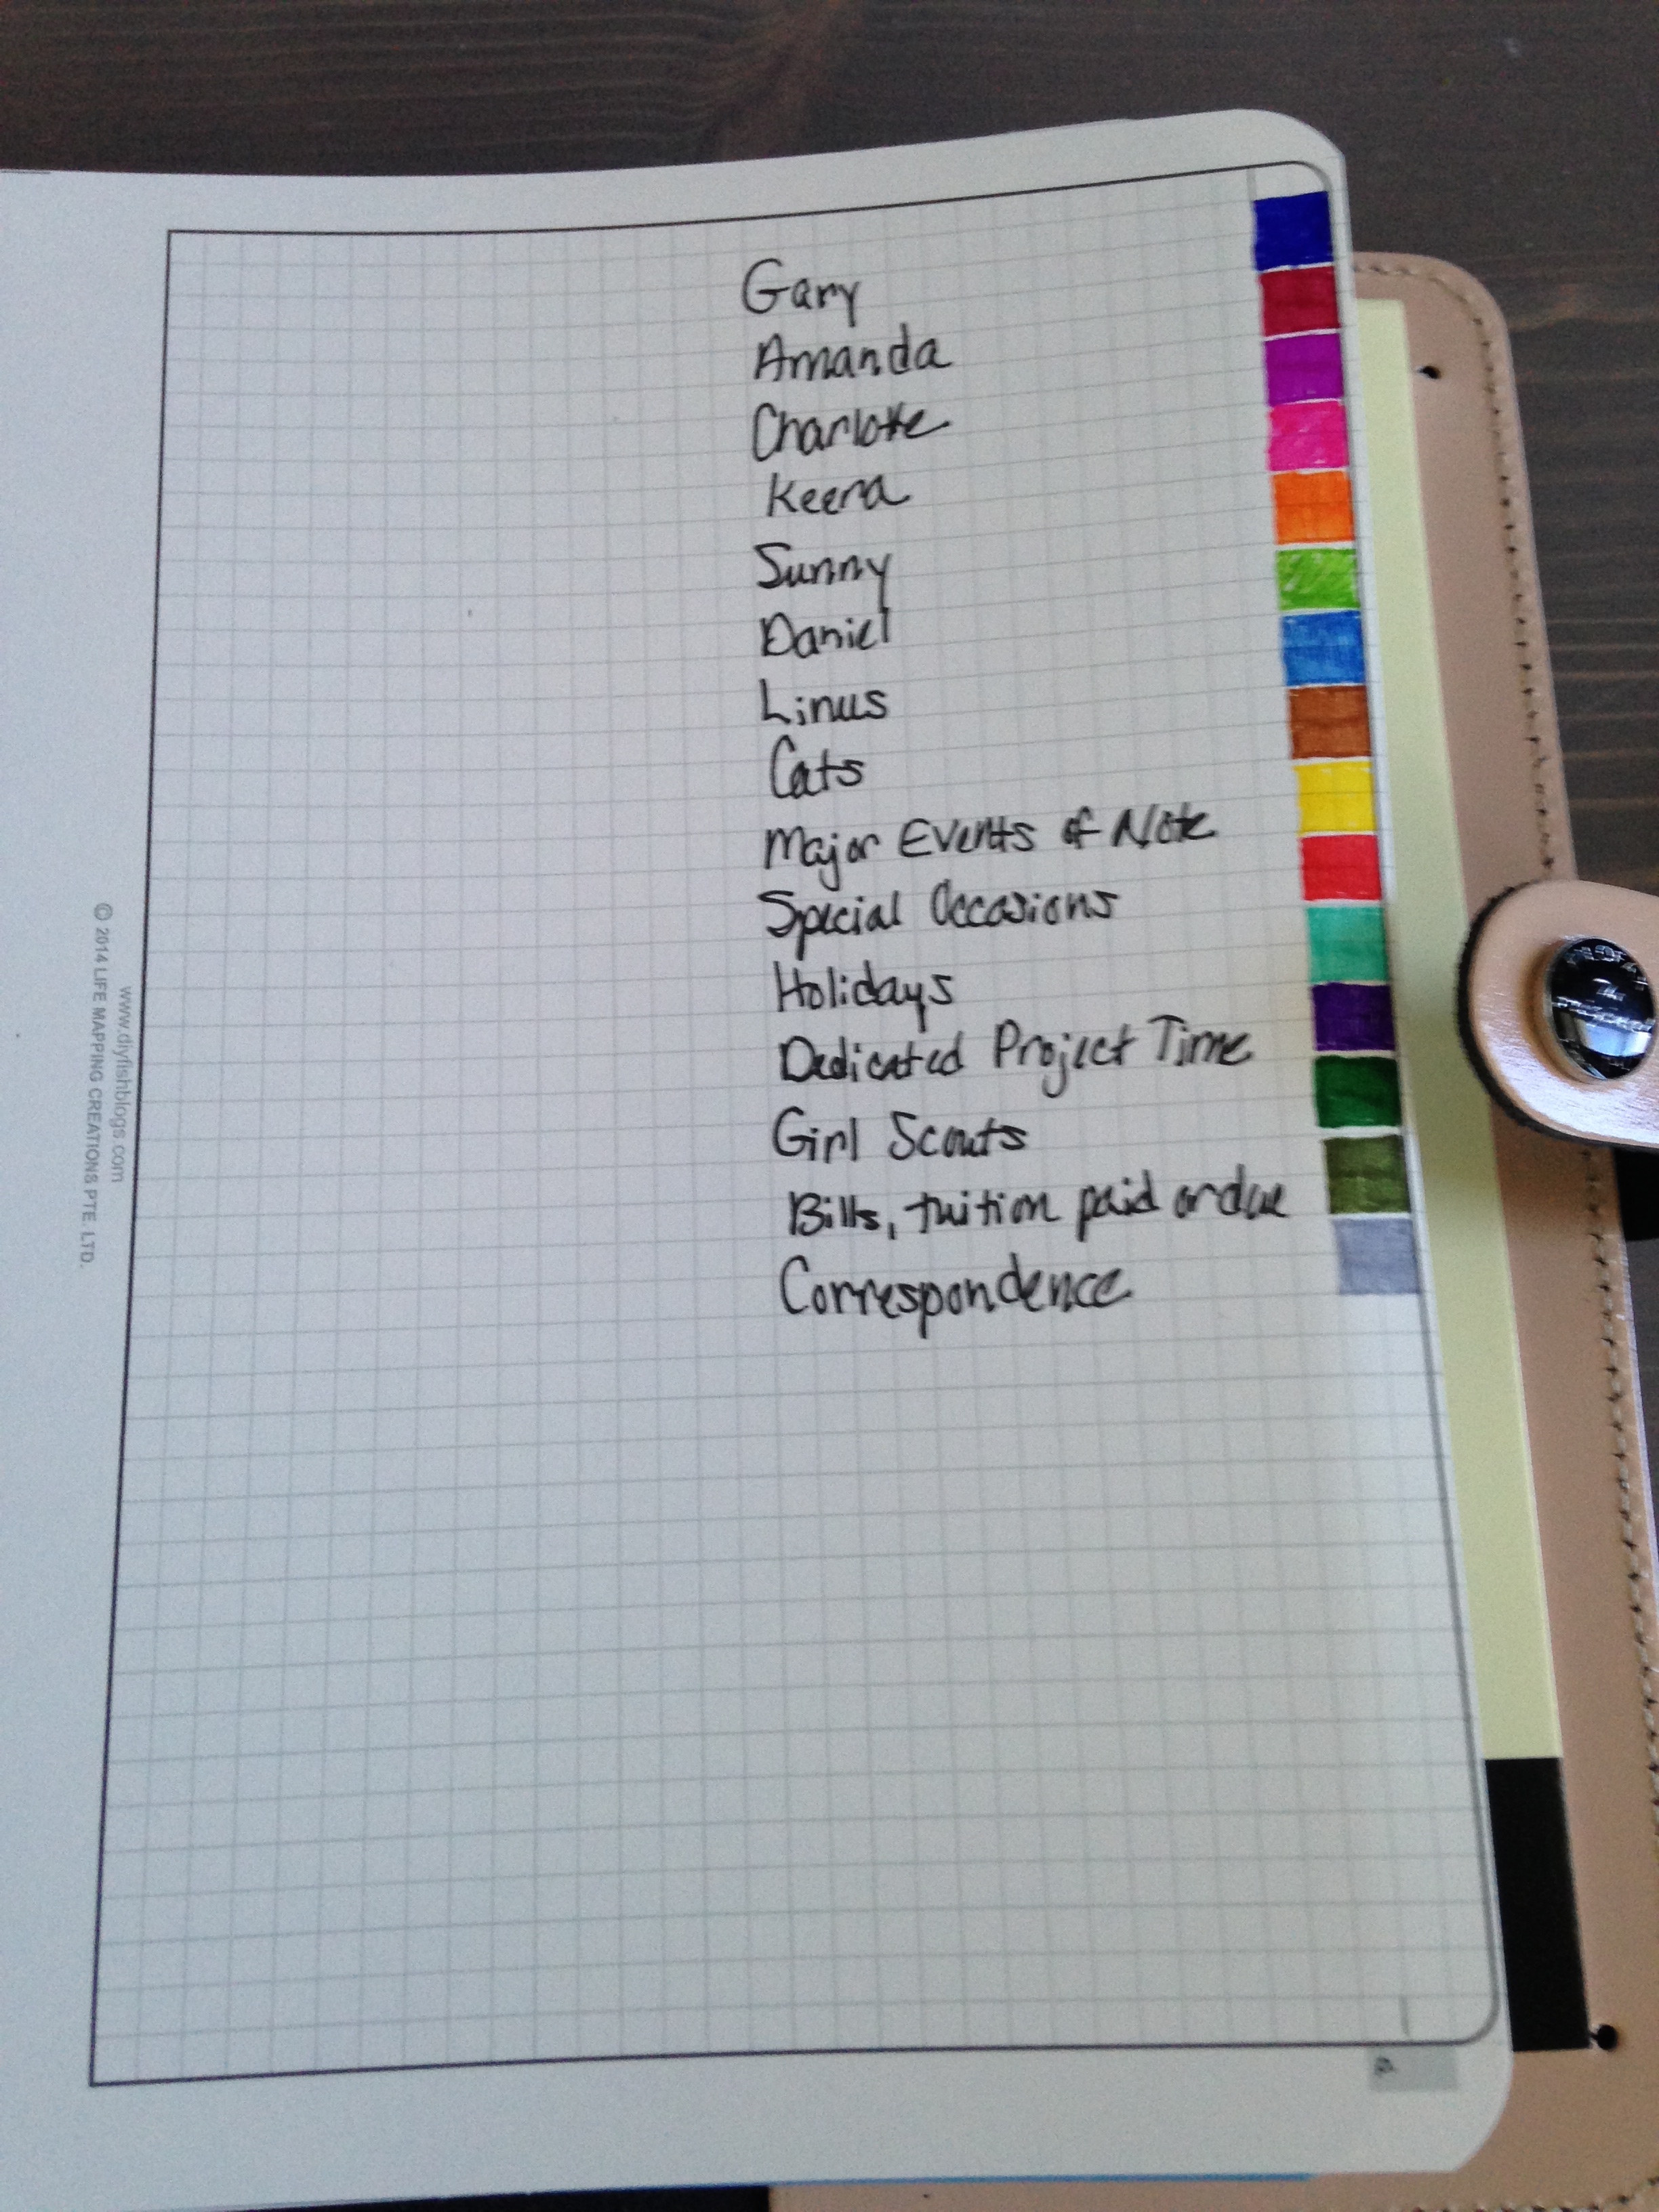 Gary
Amanda
Charlotte
Keera
Sunny
Daniel
Linus
Cats
Major Events of Note
Special Occasions
Holidays
Dedicated Project Time
Girl Scouts
Bills, tuition paid or due
Correspondence
www.diyfishblogs.com
© 2014 LIFE MAPPING CREATIONS PTE. LTD.